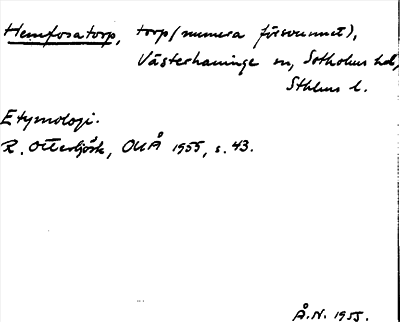 Hemfosatorp, torp (numera försvunnet),
Västerhaninge sn, Sotholms hd,
Sthlms l.
Etymologi.
R. Otterbjörk, OUÅ 1955, s. 43.
Å.N. 1955.